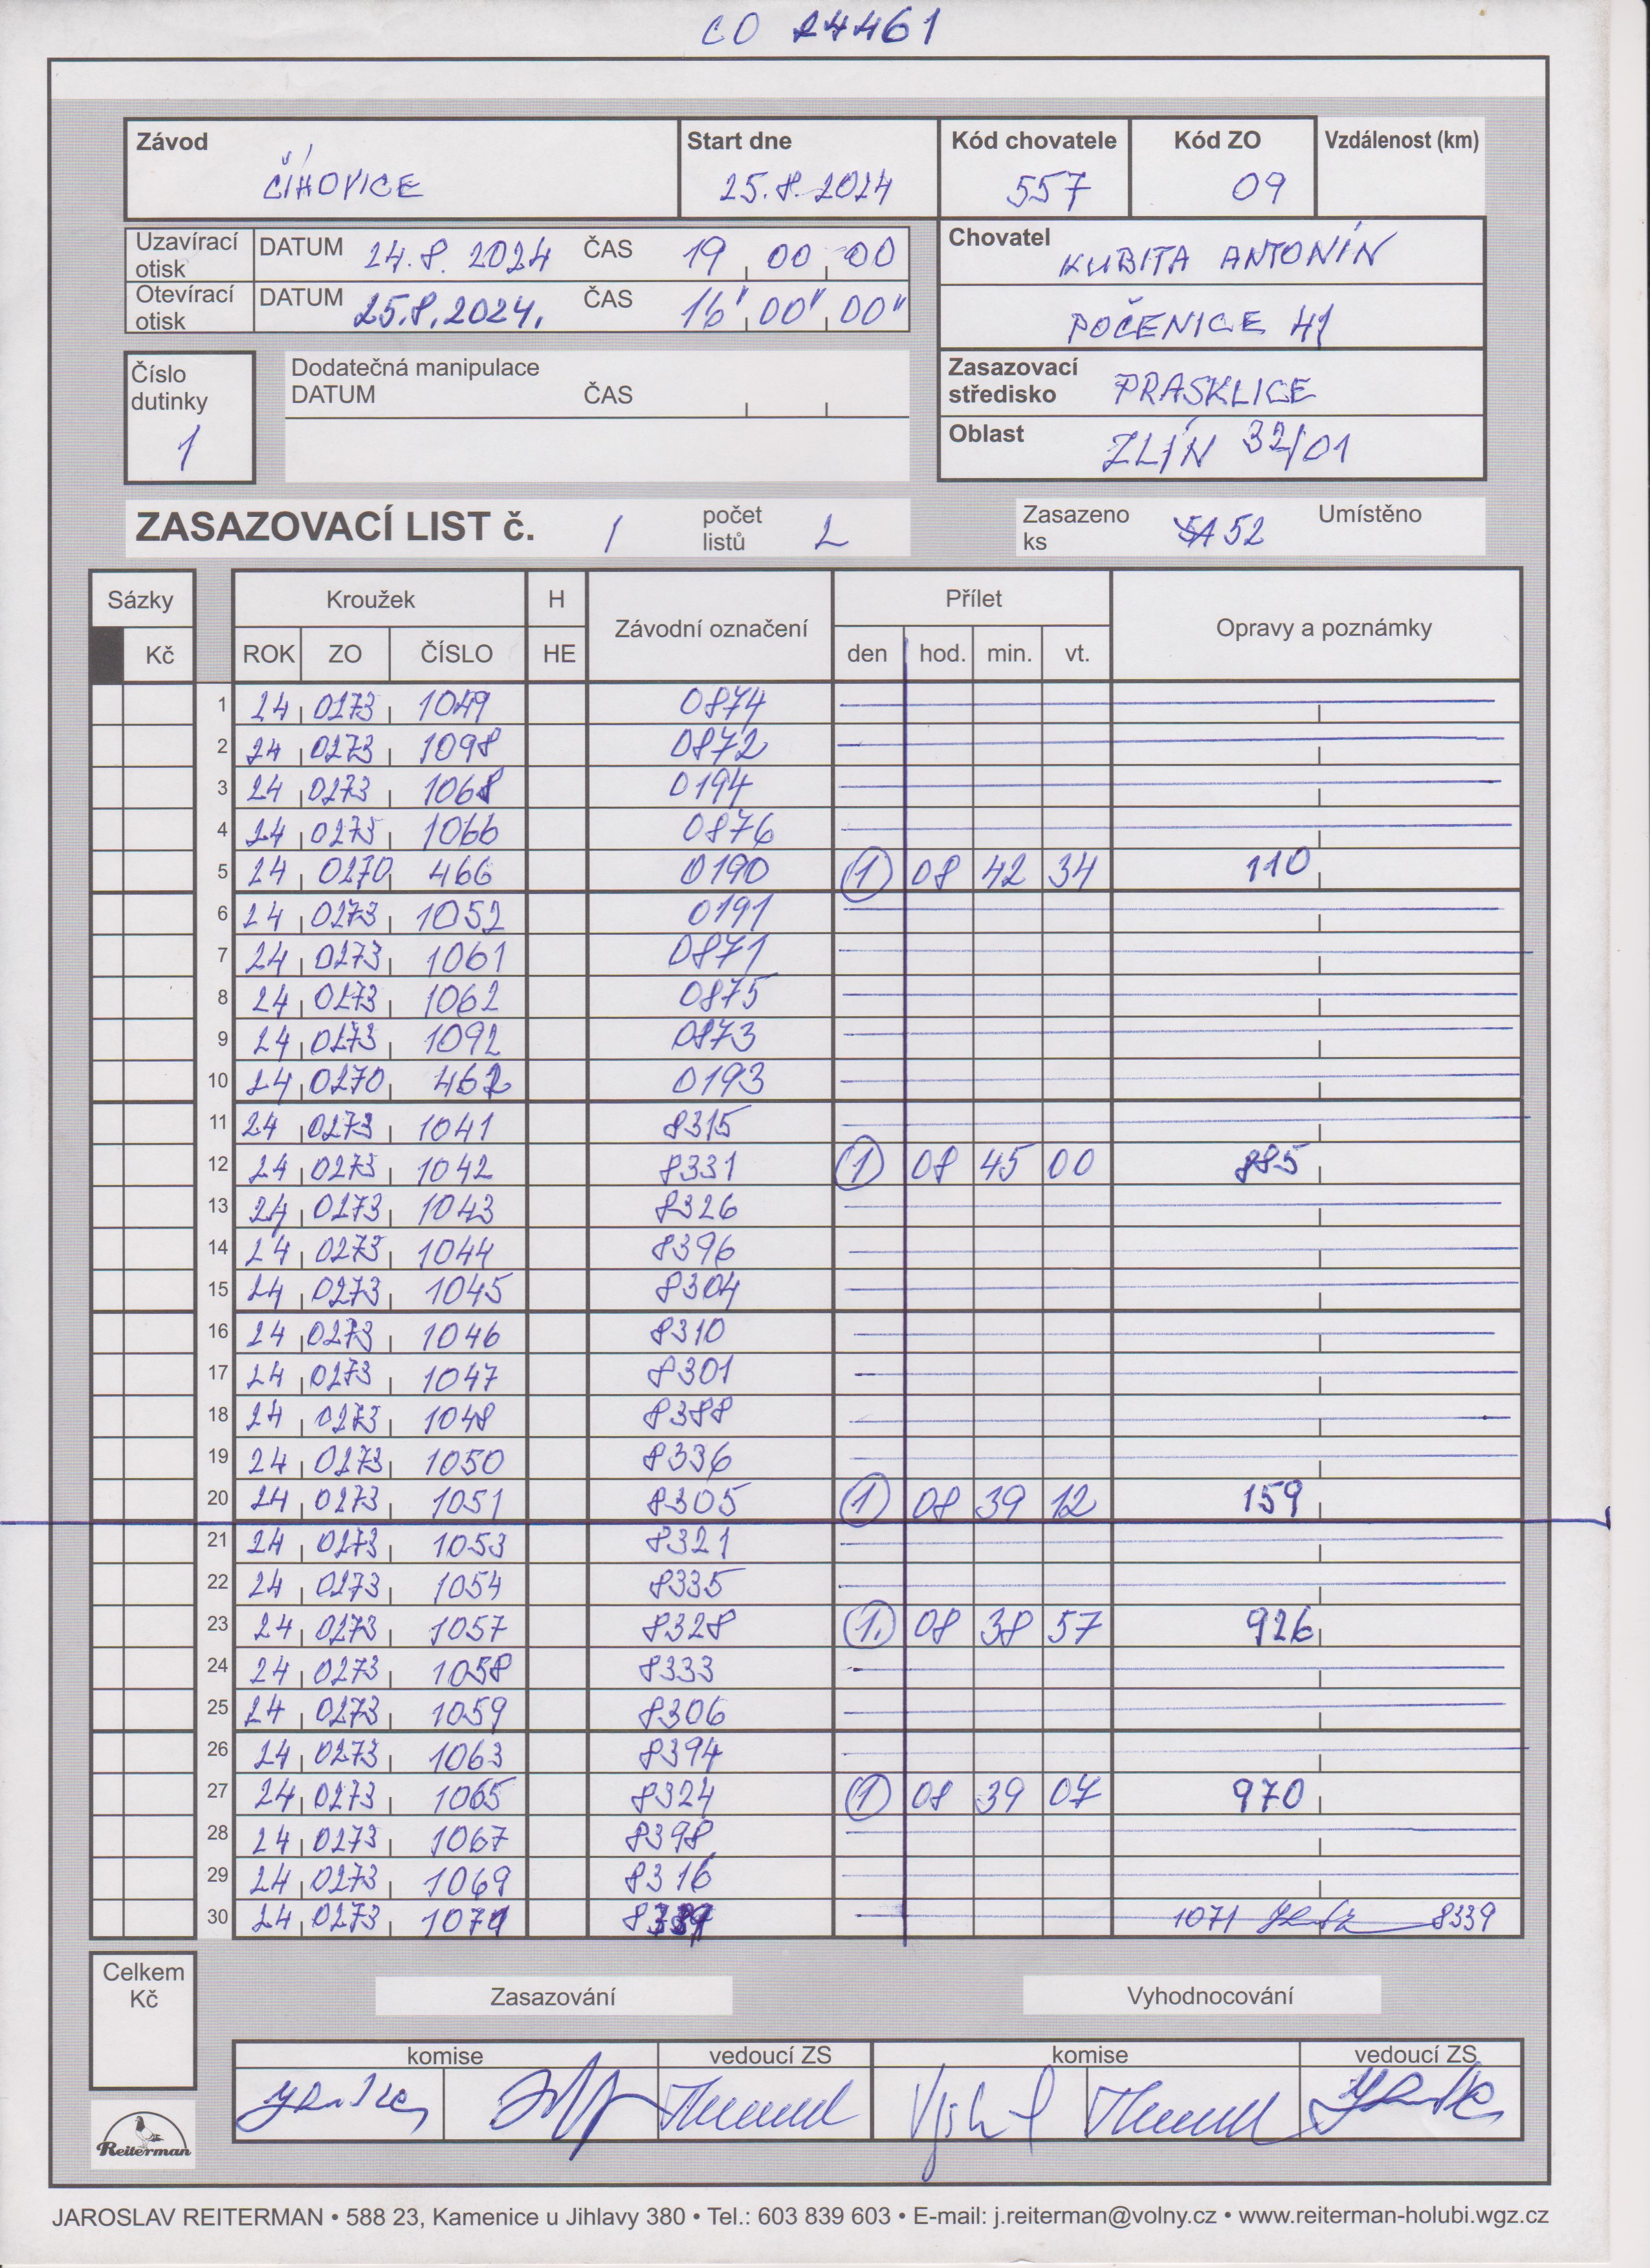 CO 24461
Závod Start dne Kód chovatele Kód ZO Vzdálenost (km)
ČÍHOVICE 25.8.2024 557 09
Uzavírací otisk DATUM 24.8.2024 ČAS 19 00 00
Otevírací otisk DATUM 25.8.2024. ČAS 16' 00" 00"
Chovatel KUBITA ANTONÍN
POČENICE 41
Číslo dutinky 1
Dodatečná manipulace
DATUM ČAS
Zasazovací středisko PRASKLICE
Oblast ZLÍN 32/01
ZASAZOVACÍ LIST č. 1 počet listů 2 Zasazeno ks 52 Umístěno
Sázky Kroužek H Závodní označení Přílet Opravy a poznámky
Kč ROK ZO ČÍSLO HE den hod. min. vt.
1 24 0273 1049 0874
2 24 0273 1098 0872
3 24 0273 1068 0194
4 24 0273 1066 0876
5 24 0270 466 0190 1 08 42 34 110
6 24 0273 1052 0191
7 24 0273 1061 0871
8 24 0273 1062 0875
9 24 0273 1092 0873
10 24 0270 462 0193
11 24 0273 1041 8315
12 24 0273 1042 8331 1 08 45 00 885
13 24 0273 1043 8326
14 24 0273 1044 8396
15 24 0273 1045 8304
16 24 0273 1046 8310
17 24 0273 1047 8301
18 24 0273 1048 8388
19 24 0273 1050 8336
20 24 0273 1051 8305 1 08 39 12 159
21 24 0273 1053 8321
22 24 0273 1054 8335
23 24 0273 1057 8328 1. 08 38 57 926
24 24 0273 1058 8333
25 24 0273 1059 8306
26 24 0273 1063 8394
27 24 0273 1065 8324 1 08 39 07 970
28 24 0273 1067 8398
29 24 0273 1069 8316
30 24 0273 1071 8339 1071 8339
Celkem Kč
Zasazování Vyhodnocování
komise vedoucí ZS komise vedoucí ZS
Reiterman
JAROSLAV REITERMAN • 588 23, Kamenice u Jihlavy 380 • Tel.: 603 839 603 • E-mail: j.reiterman@volny.cz • www.reiterman-holubi.wgz.cz